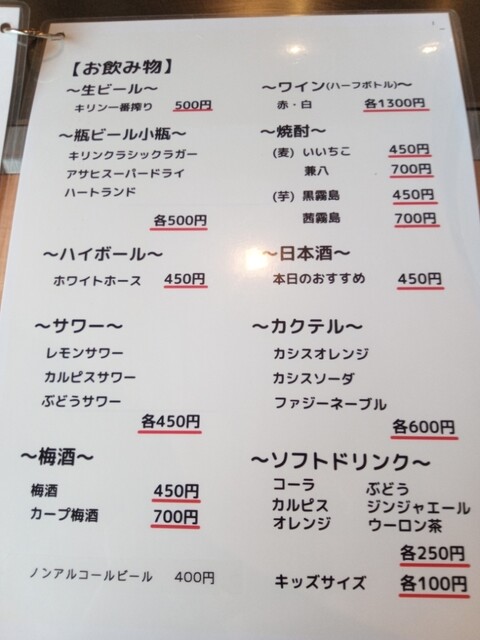 【お飲み物】
～生ビール～
キリン一番搾り 500円
～瓶ビール小瓶～
キリンクラシックラガー
アサヒスーパードライ
ハートランド
各500円
～ハイボール～
ホワイトホース 450円
～サワー～
レモンサワー
カルピスサワー
ぶどうサワー
各450円
～梅酒～
梅酒 450円
カープ梅酒 700円
ノンアルコールビール 400円
～ワイン(ハーフボトル)～
赤・白 各1300円
～焼酎～
(麦) いいちこ 450円
兼八 700円
(芋) 黒霧島 450円
茜霧島 700円
～日本酒～
本日のおすすめ 450円
～カクテル～
カシスオレンジ
カシスソーダ
ファジーネーブル
各600円
～ソフトドリンク～
コーラ ぶどう
カルピス ジンジャエール
オレンジ ウーロン茶
各250円
キッズサイズ 各100円